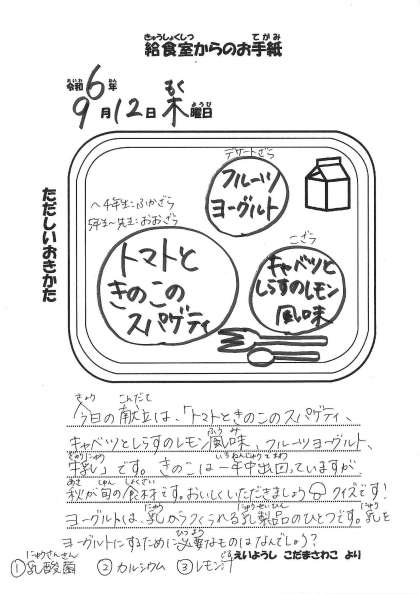 きゅうしょくしつ　てがみ
給食室からのお手紙
れいわ　ねん
令和6年
もく
9月12日木曜日
ようび
デザートざら
フルーツ
ヨーグルト
～4年生:ふかざら
5年生～先生:おおざら
ただしいおきかた
トマトと
きのこの
スパゲティ
こざら
キャベツと
しらすのレモン
風味
きょう　こんだて
今日の献立は、「トマトときのこのスパゲティ、
ふうみ
キャベツとしらすのレモン風味、フルーツヨーグルト、
ぎゅうにゅう　いちねんじゅうでまわ
牛乳」です。きのこは一年中出回っていますが
あき　しゅん　しょくざい
秋が旬の食材です。おいしくいただきましょう クイズです!
にゅう　にゅうせいひん　にゅう
ヨーグルトは、乳からつくられる乳製品のひとつです。乳を
ひつよう
ヨーグルトにするために必要なものはなんでしょう?
えいようし こだまさわこ より
にゅうさんきん　じる
①乳酸菌 ②カルシウム ③レモン汁